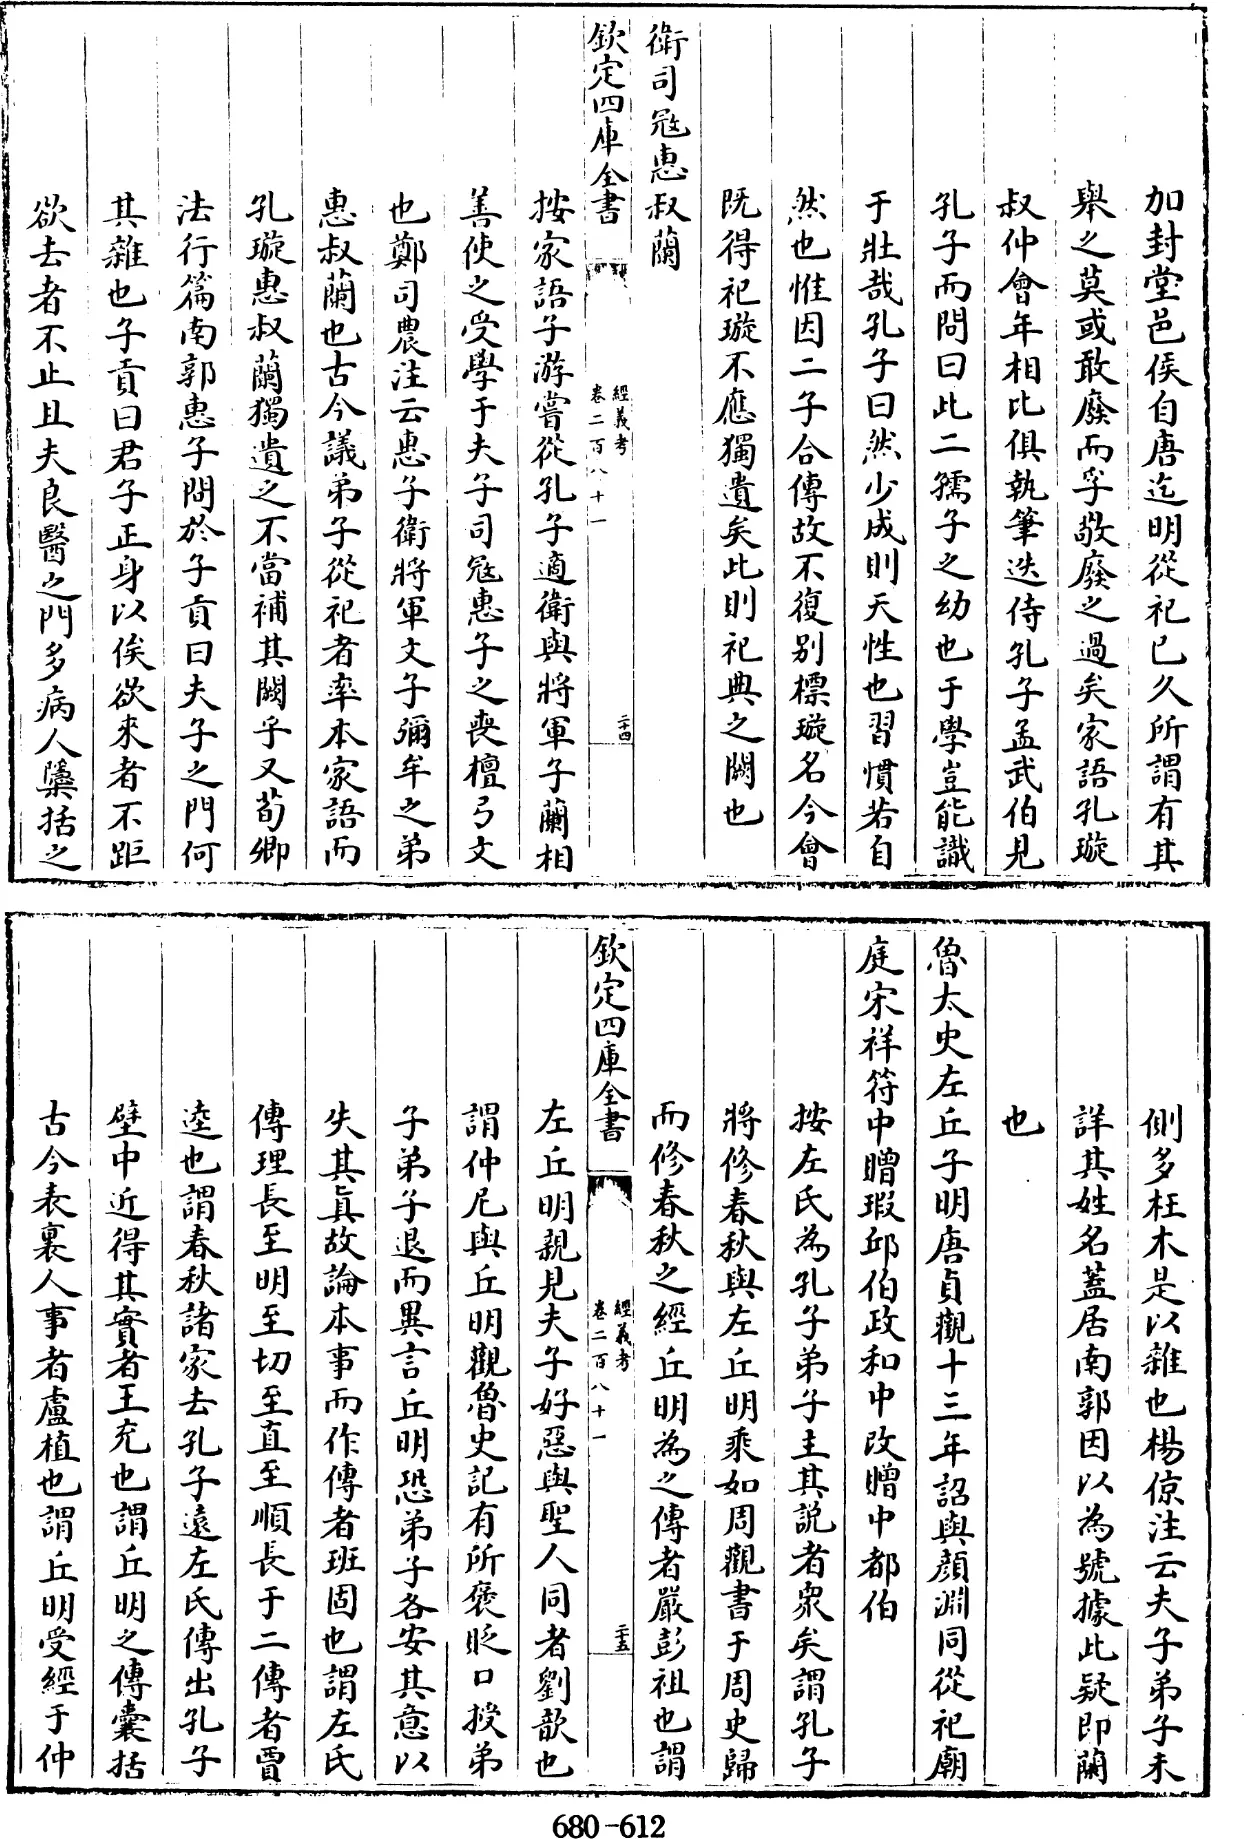 加封堂邑侯自唐迄明從祀已久所謂有其
舉之莫或敢廢而孚敬廢之過矣家語孔璇
叔仲會年相比俱執筆迭侍孔子孟武伯見
孔子而問曰此二孺子之幼也于學豈能識
于壯哉孔子曰然少成則天性也習慣若自
然也惟因二子合傳故不復别標璇名今會
既得祀璇不應獨遺矣此則祀典之闕也
衛司宼惠叔蘭
欽定四庫全書
經義考
卷二百八十一
二十四
按家語子游嘗從孔子適衛與將軍子蘭相
善使之受學于夫子司宼惠子之喪檀弓文
也鄭司農注云惠子衛將軍文子彌牟之弟
惠叔蘭也古今議弟子從祀者率本家語而
孔璇惠叔蘭獨遺之不當補其闕乎又荀卿
法行篇南郭惠子問於子貢曰夫子之門何
其雜也子貢曰君子正身以俟欲來者不距
欲去者不止且夫良醫之門多病人檃括之
側多枉木是以雜也楊倞注云夫子弟子未
詳其姓名蓋居南郭因以為號據此疑即蘭
也
魯太史左丘子明唐貞觀十三年詔與顏淵同從祀廟
庭宋祥符中贈瑕邱伯政和中改贈中都伯
按左氏為孔子弟子主其説者衆矣謂孔子
將修春秋與左丘明乘如周觀書于周史歸
而修春秋之經丘明為之傳者嚴彭祖也謂
欽定四庫全書
經義考
卷二百八十一
二十五
左丘明親見夫子好惡與聖人同者劉歆也
謂仲尼與丘明觀魯史記有所褒貶口授弟
子弟子退而異言丘明恐弟子各安其意以
失其真故論本事而作傳者班固也謂左氏
傳理長至明至切至直至順長于二傳者賈
逵也謂春秋諸家去孔子遠左氏傳出孔子
壁中近得其實者王充也謂丘明之傳囊括
古今表裏人事者盧植也謂丘明受經于仲
680-612